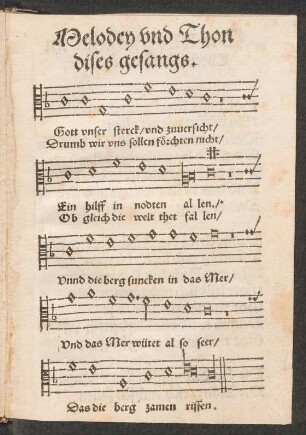 Melodey vnd Thon
dises gesangs.
Gott vnser sterck/vnd zuuersicht/
Drumb wir vns sollen förchten nicht/
Ein hilff in nodten al len./
Ob gleich die welt thet fal len/
Vnnd die berg suncken in das Mer/
Vnd das Mer wütet al so seer/
Das die berg zamen rissen.